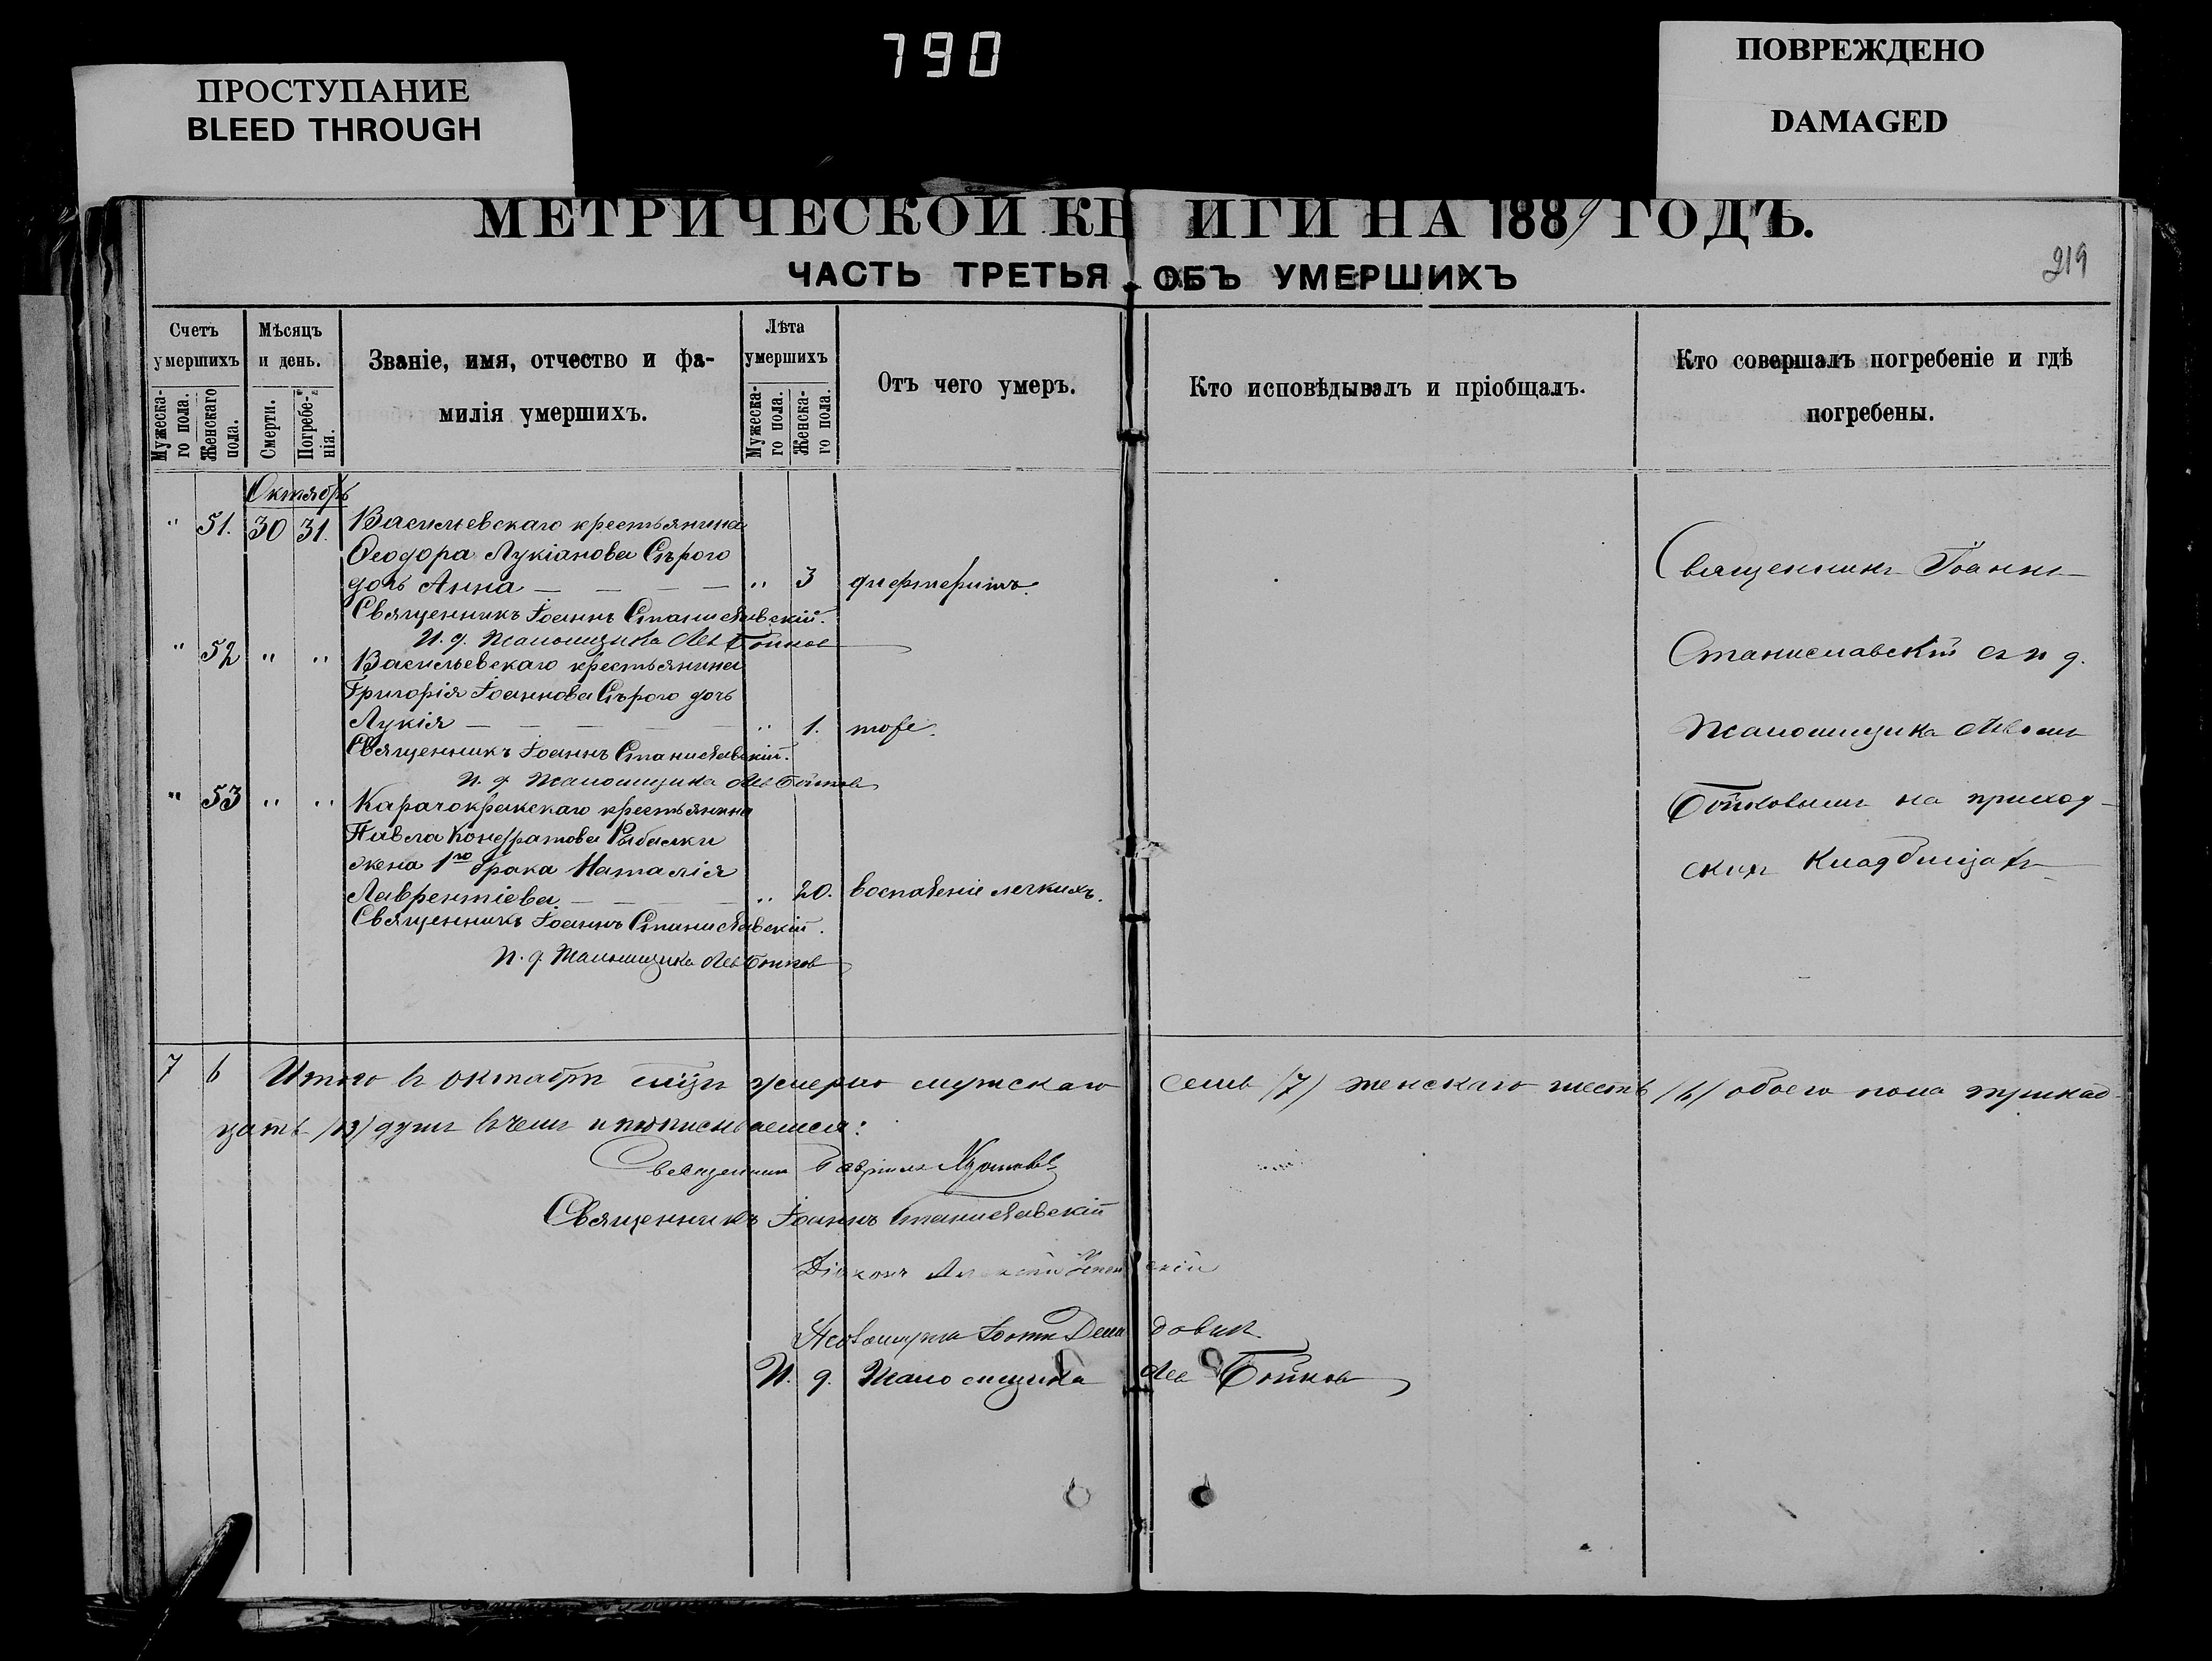 790
ПРОСТУПАНИЕ
BLEED THROUGH
ПОВРЕЖДЕНО
DAMAGED
МЕТРИЧЕСКОЙ КНИГИ НА 1889 ГОДЪ.
ЧАСТЬ ТРЕТЬЯ ОБЪ УМЕРШИХЪ
219
Счетъ умершихъ
Мужеска-го пола.
Женскаго пола.
Мѣсяцъ и день.
Смерти.
Погребе-нія.
Званіе, имя, отчество и фа-
милія умершихъ.
Лѣта умершихъ
Мужеска-го пола.
Женска-го пола.
Отъ чего умеръ.
Кто исповѣдывалъ и пріобщалъ.
Кто совершалъ погребеніе и гдѣ
погребены.
Октябрь
" 51. 30 31. Васильевскаго крестьянина
Ѳеодора Лукіанова Сѣрого
дочь Анна — — — — " 3 дифтеритъ.
Священникъ Іоаннъ Станиславскій.
И. д. Псаломщика Левъ Бойковъ
" 52 " " Васильевскаго крестьянина
Григорія Іоаннова Сѣрого дочь
Лукія — — — — " 1. тоже.
Священникъ Іоаннъ Станиславскій.
И. д. Псаломщика Левъ Бойковъ
" 53 " " Карачокракскаго крестьянина
Павла Кондратова Рыбалки
жена 1го брака Наталія
Лаврентіева — — — " 20. воспаленіе легкихъ.
Священникъ Іоаннъ Станиславскій.
И. д. Псаломщика Левъ Бойковъ
Священникъ Іоаннъ
Станиславскій съ и д.
Псаломщика Львомъ
Бойковымъ на приход-
скихъ Кладбищахъ
7 6 Итого въ октябрѣ мцѣ умерло мужскаго семь /7/ женскаго шесть /6/ обоего пола тринад-
цать /13/ душъ въ чемъ и подписываемся:
Священникъ Гавріилъ
Священникъ Іоаннъ Станиславскій
Діаконъ
Псаломщикъ
И. д. Псаломщика Левъ Бойковъ